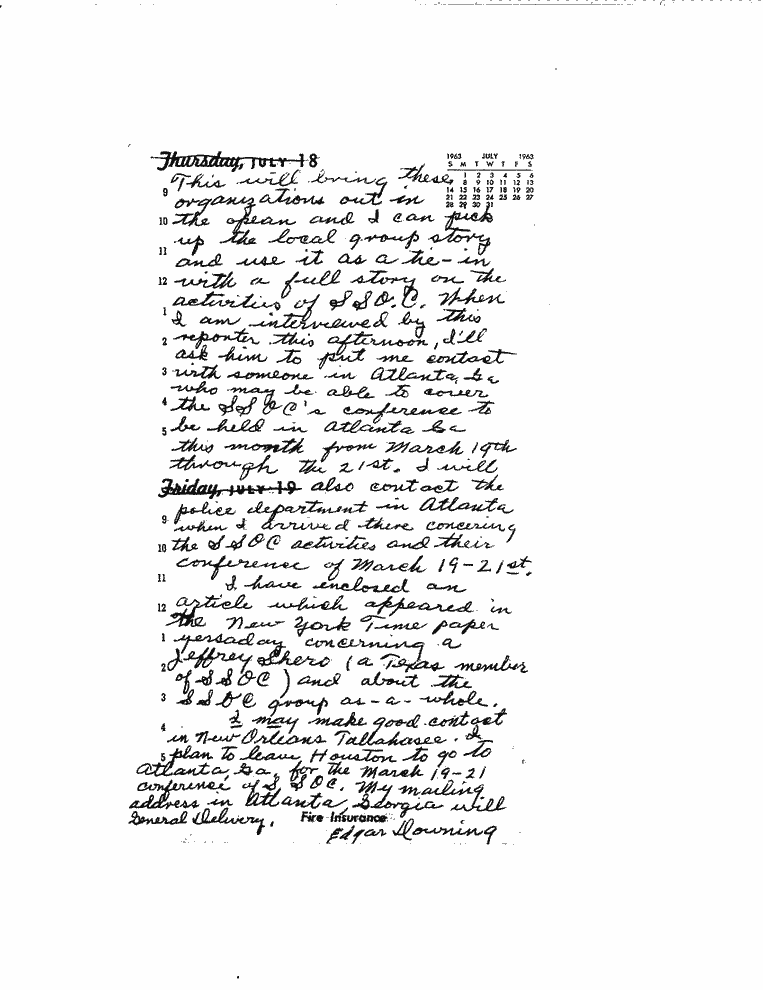 Thursday, JULY 18
1963 JULY 1963
S M T W T F S
1 2 3 4 5 6
7 8 9 10 11 12 13
14 15 16 17 18 19 20
21 22 23 24 25 26 27
28 29 30 31
This will bring these
9 organizations out in
10 the opean and I can pick
up the local group story
11 and use it as a tie-in
12 with a full story on the
activities of SSO.C. When
1 I am interviewed by this
2 reporter this afternoon, I'll
ask him to put me contact
3 with someone in Atlanta, Ga
who may be able to cover
4 the SSOC's conference to
5 be held in Atlanta Ga
this month from March 19th
through the 21st. I will
Friday, JULY 19 also contact the
police department in Atlanta
9 when I arrived there concering
10 the SSOC activities and their
conference of March 19-21st.
11 I have enclosed an
12 article which appeared in
the New York Time paper
1 yersaday concerning a
2 Jeffrey Shero (a Texas member
of SSOC) and about the
3 SSOC group as-a-whole.
4 I may make good contget
in New Orleans Tallahasee. I
5 plan to leave Houston to go to
Atlanta, Ga, for the March 19-21
conference of S, SOC. My mailing
address in Atlanta, Georgia will
General Delivery, Fire Insurance
Edgar Downing